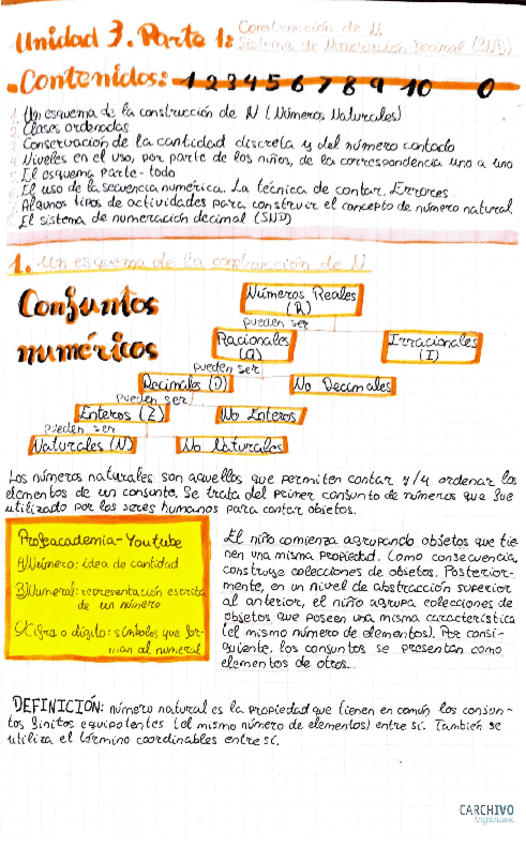 Unidad 3. Parte 1: Construcción de N.
Sistema de Numeración Decimal (SND)
Contenidos: 1 2 3 4 5 6 7 8 9 10 0
1. Un esquema de la construcción de N (Números Naturales)
2. Clases ordenadas
3. Conservación de la cantidad discreta y del número contado
4. Niveles en el uso, por parte de los niños, de la correspondencia uno a uno
5. El esquema Parte-todo
6. El uso de la secuencia numérica. La técnica de contar. Errores
7. Algunos tipos de actividades para construir el concepto de número natural.
8. El sistema de numeración decimal (SND)
1. Un esquema de la construcción de N
Conjuntos
numéricos
Números Reales
(R)
pueden ser
Racionales
(Q)
Irracionales
(I)
pueden ser
Decimales (D)
No Decimales
pueden ser
Enteros (Z)
No Enteros
pueden ser
Naturales (N)
No Naturales
Los números naturales son aquellos que permiten contar y/u ordenar los
elementos de un conjunto. Se trata del primer conjunto de números que fue
utilizado por los seres humanos para contar objetos.
Profeacademia-Youtube
A) Número: idea de cantidad
B) Numeral: representación escrita
de un número
C) Cifra o dígito: símbolos que for-
man al numeral
El niño comienza agrupando objetos que tie-
nen una misma propiedad. Como consecuencia,
construye colecciones de objetos. Posterior-
mente, en un nivel de abstracción superior
al anterior, el niño agrupa colecciones de
objetos que poseen una misma característica
(el mismo número de elementos). Por consi-
guiente, los conjuntos se presentan como
elementos de otros.
DEFINICIÓN: número natural es la propiedad que tienen en común los conjun-
tos finitos equipotentes (el mismo número de elementos) entre sí. También se
utiliza el término coordinables entre sí.
CARCHIVO